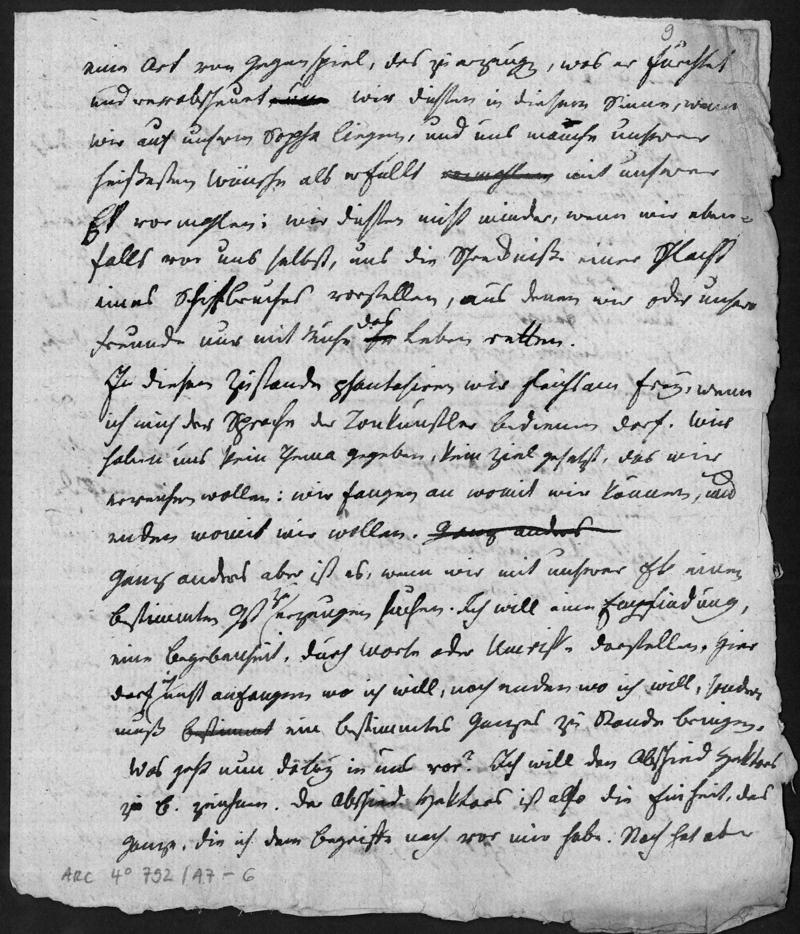 9
eine Art von Gegenspiel, das zu erzeugen, was er fürchtet
und verabscheuet. Wir dichten in diesem Sinne, wenn
wir auf unserm Sopha liegen, und uns manche unsrer
heißesten Wünsche als erfüllt mit unsrer
EK vormahlen; wir dichten nicht minder, wenn wir eben=
falls vor uns selbst, uns die Schrecknisse einer Schlacht
eines Schiffbruches vorstellen, aus denen wir oder unsere
Freunde nur mit Mühe das Leben retten.
In diesem Zustande phantasiren wir gleichsam frey, wenn
ich mich der Sprache der Tonkünstler bedienen darf. Wir
haben uns kein Thema gegeben, kein Ziel gesetzt, das wir
erreichen wollen: wir fangen an womit wir können, und
enden womit wir wollen. Ganz anders
Ganz anders aber ist es, wenn wir mit unsrer EK einen
bestimmten Gst zu erzeugen suchen. Ich will eine Empfindung,
eine Begebenheit, durch Worte oder Umrisse darstellen. Hier
darf ich nicht anfangen wo ich will, noch enden wo ich will, sondern
muß bestimmt ein bestimmtes Ganzes zu Stande bringen.
Was geht nun dabey in uns vor? Ich will den Abschied Hektors
z. B. zeichnen. Der Abschied Hektors ist also die Einheit, das
Ganze, die ich dem Begriffe nach vor mir habe. Noch hat aber
ARC 4° 792/A7-6